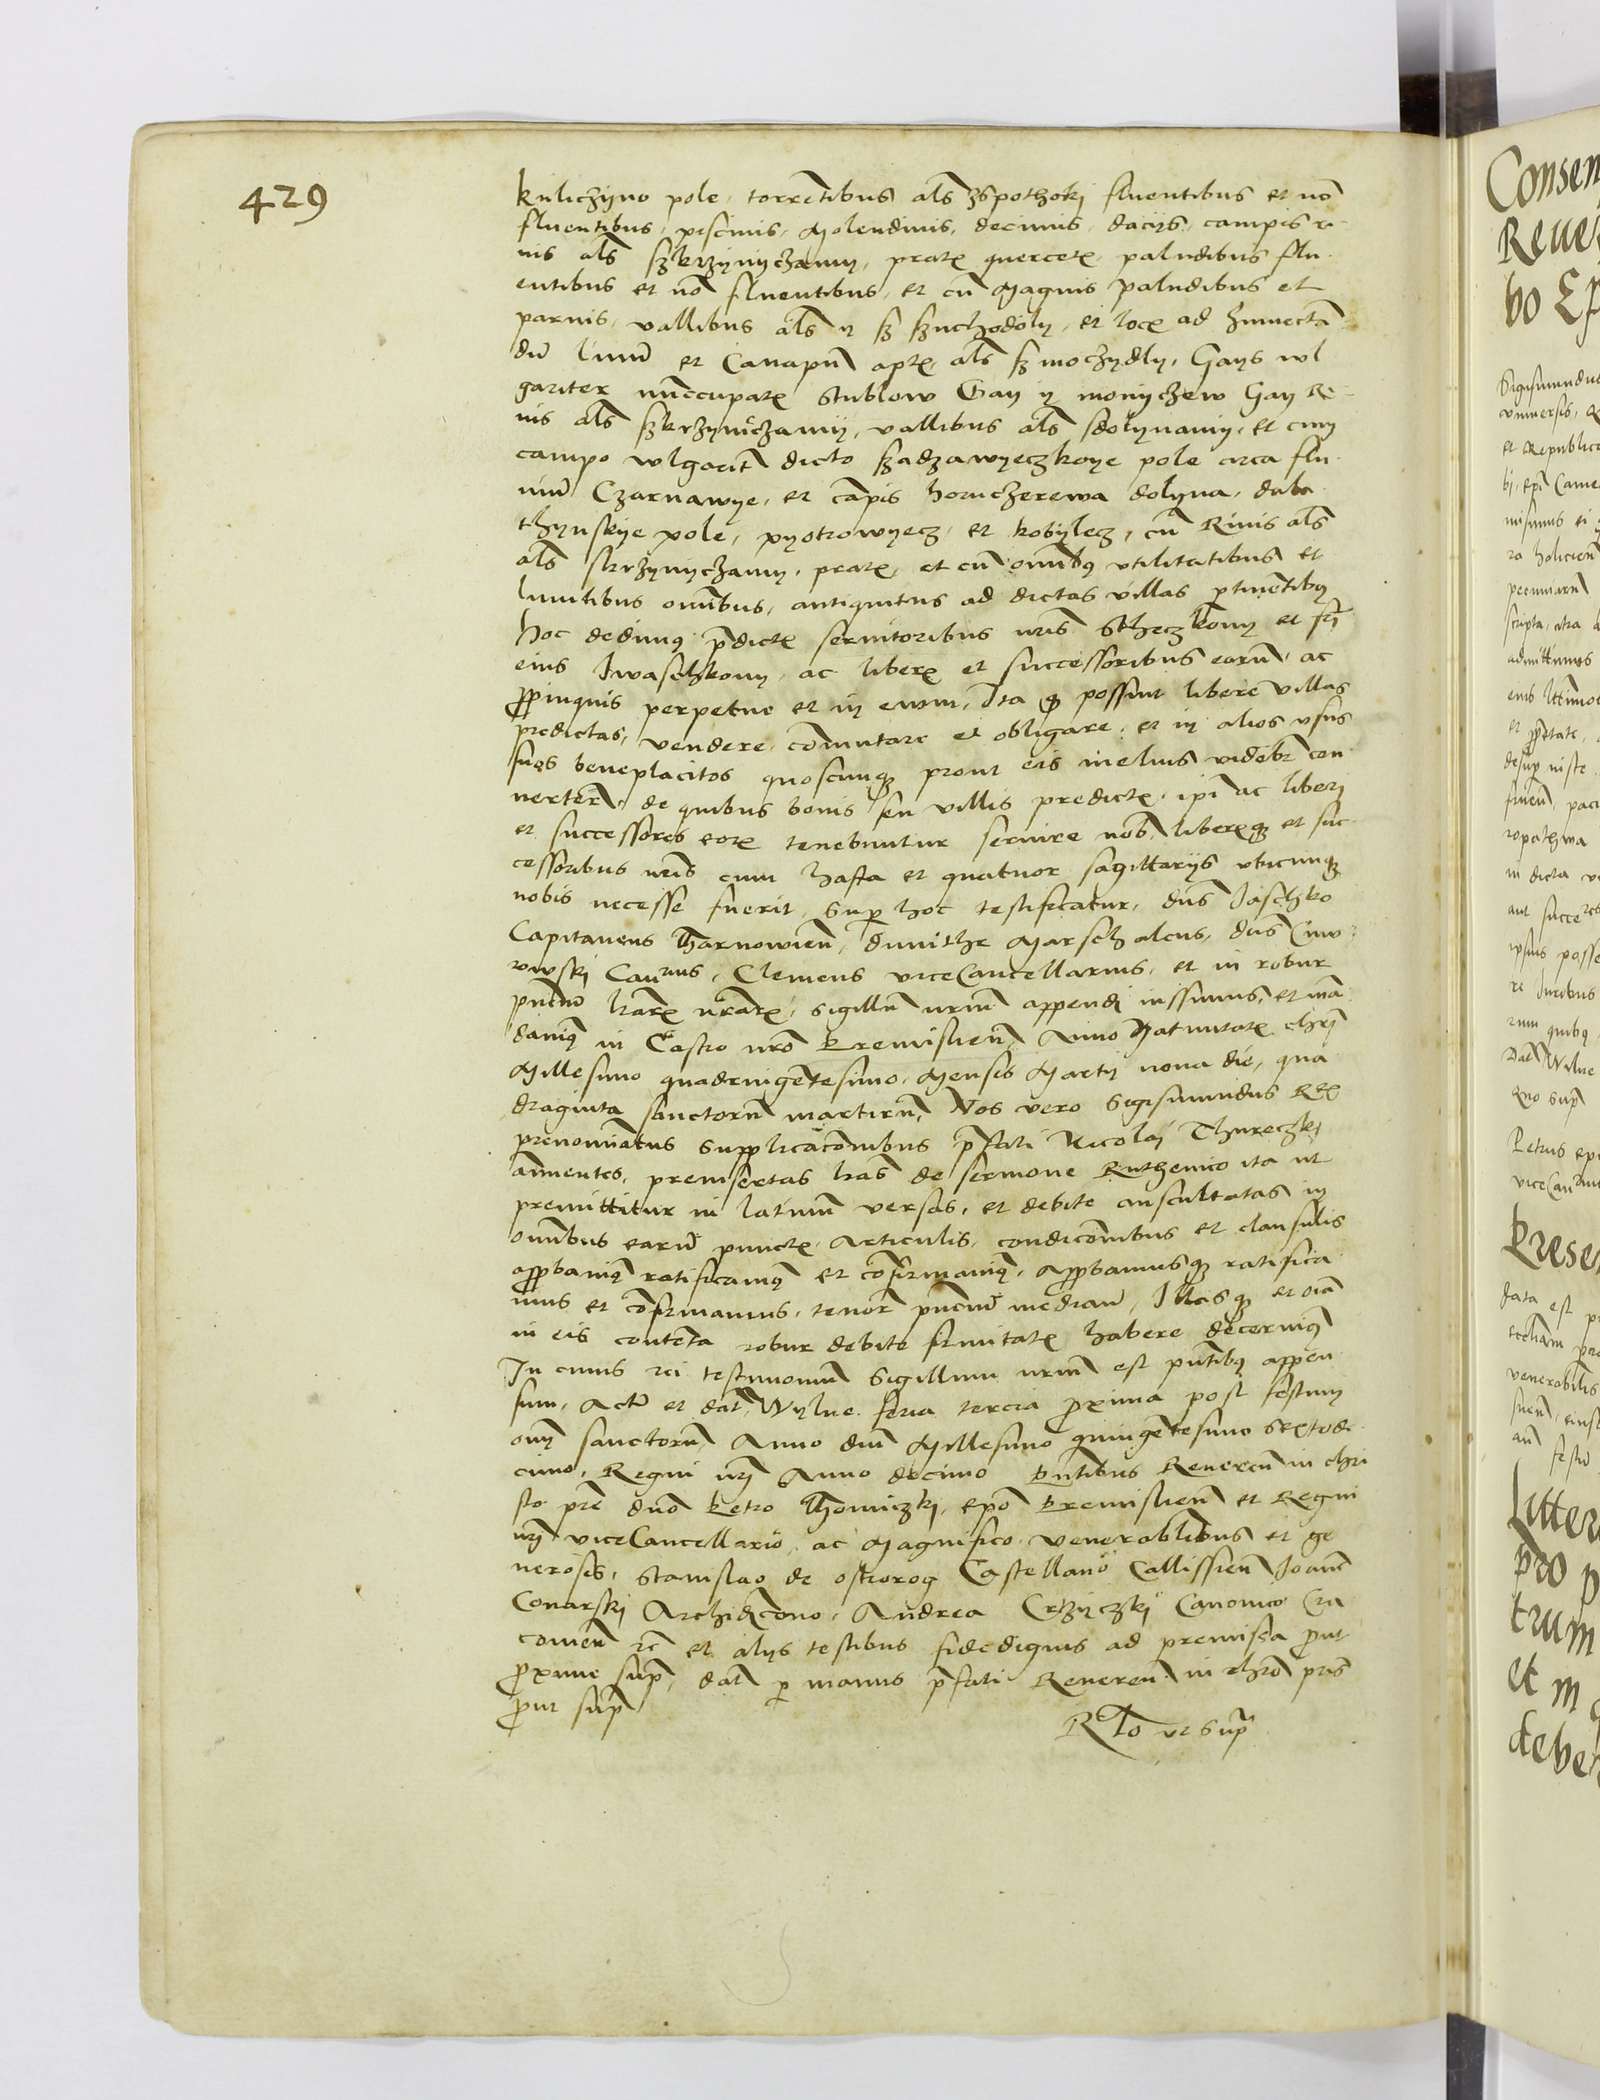 429
kuliczyno pole, torrētibus als zspothoki fluentibus et nō
fluentibus, piscinis, Molendinis, decimis, dacijs, campis ri
nis als szkrzynyczamy, prat quercet paludibus flu
entibus et nō fluentibus, et cū Magnis paludibus et
parvis, vallibus als y sz szuchodoly, et loc ad humectā
dū linū et Canapū apt als sz moczydly, Gays wl
gariter nūccupat Stublow Gay y monyczew Gay Ri
nis als szkrzyniczamy, vallibus als sdolynamy, et cum
campo wlgarit dicto szadzawyeczkoye pole circa flu
uiū Czarnawye, et cāpis horuczerewa dolyna, duba
thynskye pole, pyotrowyecz, et kobylecz, cū Riuis als
als skrzynyczamy, prat, et cū omībus vtilitatibus et
limitibus omībus, antiquitus ad dictas villas ptinētibus
hoc dedimus pdict seruitoribus nris Stheczkony et fri
eius Iwaschkony, ac liber et successoribus earū, ac
propinquis perpetue et in ewm, Ita q possint libere villas
predictas, vendere, comutare et obligare, et in alios vsus
suos beneplacitos quoscunq prout eis melius videbr con
uertere, de quibus bonis seu villis predict ipi ac liberi
et successores eor tenebuntur seruire nob liberisq et suc
cessoribus nris cum hasta et quatuor sagittarijs vbicunq
nobis necesse fuerit, Sup hoc testificatur, dns Jaschko
Capitaneus Tharnowien, dmithr Marschalcus, dns
Clemens viceCancellarius, et in robur
pntiu har nrar, sigillū nrum appendi iussimus, et mā
damus in Castro nro Premislien, Anno Natiuitat chri
Millesimo quadringētesimo, Mensis Martij nona die, qua
draginta sanctorū martirū, Nos vero Sigismundus Rex
prenominatus supplicacōnibus pfati Nicolai Thureczki
annuentes, preinsertas lras de sermone Ruthenico ita ut
premittitur in latinum versas, et debite auscultatas in
omībus earū punct Articulis, condicōnibus et clausulis
approbamus ratificamus et cōfirmamus, approbamusq ratifica
mus et cōfirmamus, tenore pntiū medianū, Illasq et oīa
in eis contēta robur debite firmitat habere decernimus
In cuius rei testimoniū Sigillum nrum est pntibus appen
sum, Actū et dat Wylne feria tercia proxima post festum
oīm sanctorū Anno dni Millesimo quingētesimo sextode
cimo, Regni nri Anno decimo Pntibus Reueren in chri
sto pre dno Petro Thomiczki, epo Premislien et Regni
nri viceCancellario, ac Magnifico, venerablibus et ge
nerosis, Stanislao de ostrorog Castellano Callissien Joane
Conarski Archidcono, Andrea Crzyczki Canonico Cra
couien et alijs testibus fidedignis ad premissa prout
proxime sup, dat p manus pfati Reueren in chro pris
prout sup
Rlo vt supra
Consen
Reue
vo Ep
Sigismundus
vniuersis
et Republica
bi, epi Came
misimus ei
ra holicien
pecuniarū
scripta
admittimus
in dicta
aut succe
ipsius posse
re iuribus
rum quibus
Dat Wylne
quo sup
Petrus epi
viceCan
Prese
data est
venerabilis
Litter
pro p
trum
et m
deben